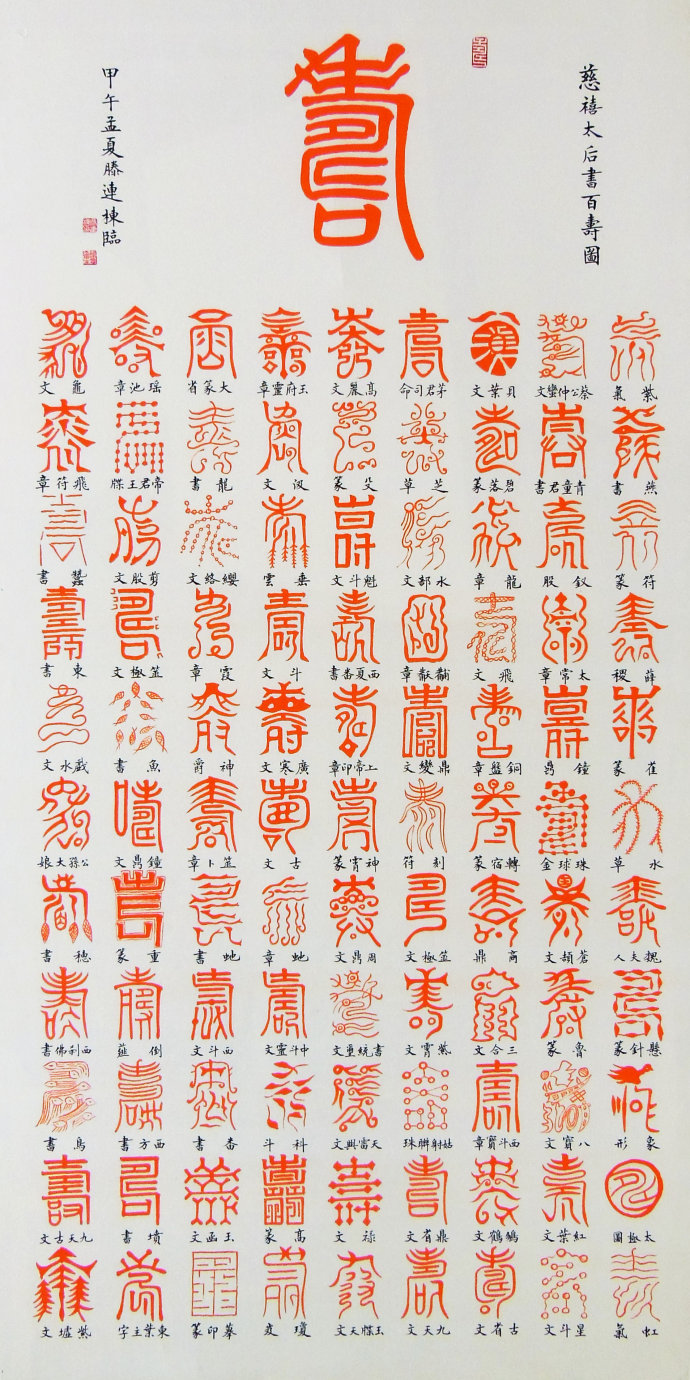 慈禧太后書百壽圖
壽
甲午孟夏滕連棟臨
紫氣
蔡公仲蠻文
貝葉文
茅君司命
高麗文
玉府靈章
大篆省
瑤池章
龜文
燕書
青童君書
碧落篆
芝草
殳篆
汲文
龍書
帝君王牒
飛符章
符篆
釵股
龍章
水部文
魁斗文
垂雲
纓絡文
剪股文
蠶書
薛稷
太常章
飛文
黼黻章
西夏番書
斗文
霞章
笠極文
東書
萑篆
鐘鼎
銅盤章
鼎變文
上帝印章
廣寒文
神爵
魚書
戲水文
水草
珠球金
轉宿篆
刻符
神霄篆
古文
筮卜章
鐘鼎文
公孫大娘
魏夫人
蒼頡文
商鼎
笠極文
周鼎文
虵章
虵書
重篆
穗書
懸針篆
魯篆
三合文
紫霄文
中斗靈文
西斗文
倒薤
西利佛書
象形
八寶文
西斗寶章
姑射聯珠
天富興文
科斗
番書
西方書
鳥書
太極圖
紅葉文
鵠鶴文
鼎省文
祿文
高篆
玉函文
墳書
九天古文
虹氣
星斗文
古省文
九天文
玉牒天文
摹印篆
東葉主字
紫墟文